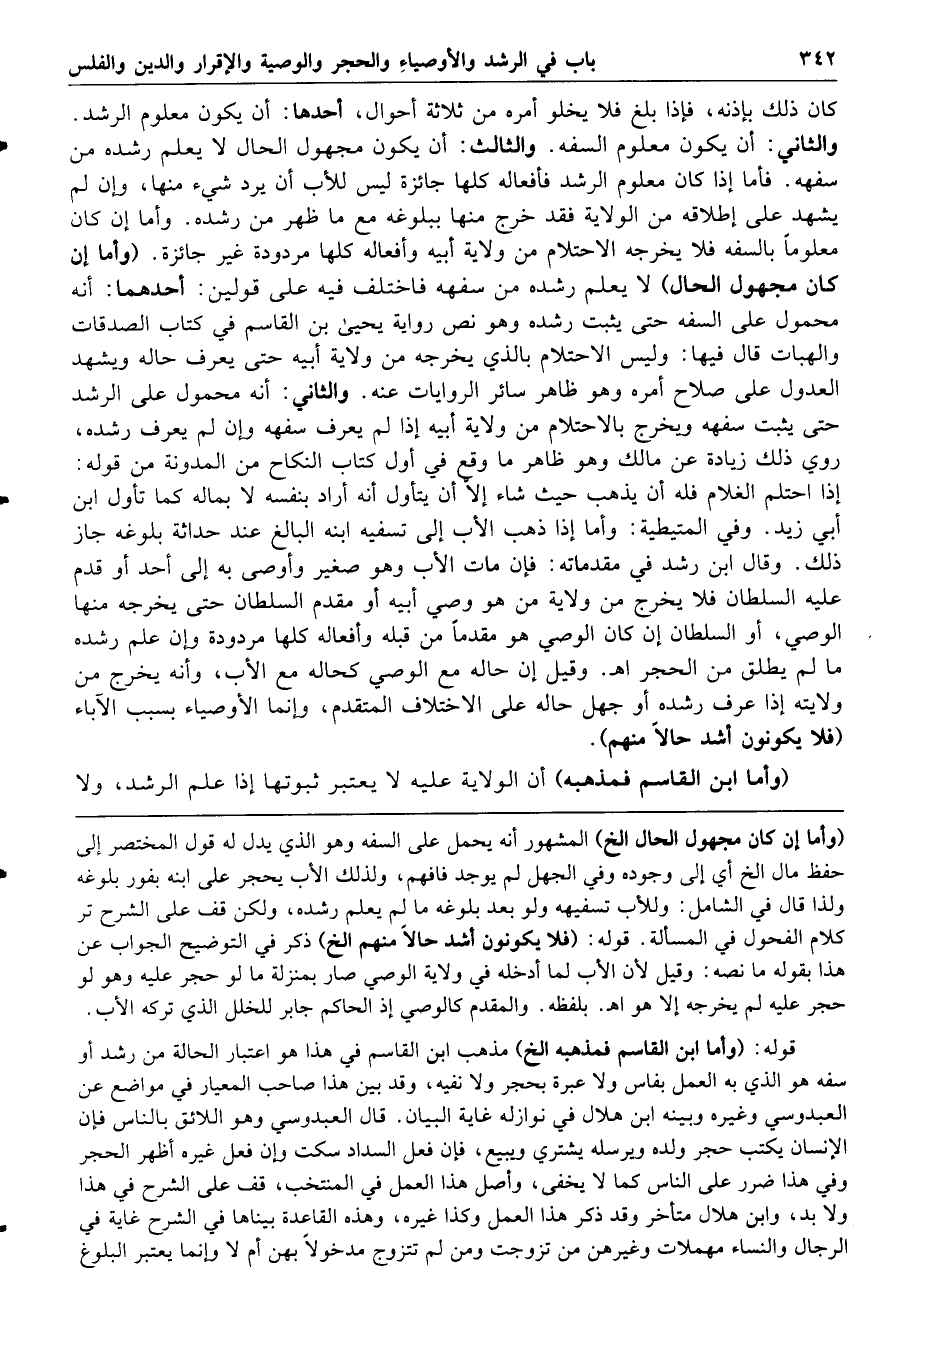 ٣٤٢
باب في الرشد والأوصياء والحجر والوصية والإقرار والدين والفلس
كان ذلك بإذنه، فإذا بلغ فلا يخلو أمره من ثلاثة أحوال، أحدها: أن يكون معلوم الرشد.
والثاني: أن يكون معلوم السفه. والثالث: أن يكون مجهول الحال لا يعلم رشده من
سفهه. فأما إذا كان معلوم الرشد فأفعاله كلها جائزة ليس للأب أن يرد شيء منها، وإن لم
يشهد على إطلاقه من الولاية فقد خرج منها ببلوغه مع ما ظهر من رشده. وأما إن كان
معلوماً بالسفه فلا يخرجه الاحتلام من ولاية أبيه وأفعاله كلها مردودة غير جائزة. (وأما إن
كان مجهول الحال) لا يعلم رشده من سفهه فاختلف فيه على قولين: أحدهما: أنه
محمول على السفه حتى يثبت رشده وهو نص رواية يحيىٰ بن القاسم في كتاب الصدقات
والهبات قال فيها: وليس الاحتلام بالذي يخرجه من ولاية أبيه حتى يعرف حاله ويشهد
العدول على صلاح أمره وهو ظاهر سائر الروايات عنه. والثاني: أنه محمول على الرشد
حتى يثبت سفهه ويخرج بالاحتلام من ولاية أبيه إذا لم يعرف سفهه وإن لم يعرف رشده،
روي ذلك زيادة عن مالك وهو ظاهر ما وقع في أول كتاب النكاح من المدونة من قوله:
إذا احتلم الغلام فله أن يذهب حيث شاء إلاّ أن يتأول أنه أراد بنفسه لا بماله كما تأول ابن
أبي زيد. وفي المتيطية: وأما إذا ذهب الأب إلى تسفيه ابنه البالغ عند حداثة بلوغه جاز
ذلك. وقال ابن رشد في مقدماته: فإن مات الأب وهو صغير وأوصى به إلى أحد أو قدم
عليه السلطان فلا يخرج من ولاية من هو وصي أبيه أو مقدم السلطان حتى يخرجه منها
الوصي، أو السلطان إن كان الوصي هو مقدماً من قبله وأفعاله كلها مردودة وإن علم رشده
ما لم يطلق من الحجر اهـ. وقيل إن حاله مع الوصي كحاله مع الأب، وأنه يخرج من
ولايته إذا عرف رشده أو جهل حاله على الاختلاف المتقدم، وإنما الأوصياء بسبب الآباء
(فلا يكونون أشد حالاً منهم).
(وأما ابن القاسم فمذهبه) أن الولاية عليه لا يعتبر ثبوتها إذا علم الرشد، ولا
(وأما إن كان مجهول الحال الخ) المشهور أنه يحمل على السفه وهو الذي يدل له قول المختصر إلى
حفظ مال الخ أي إلى وجوده وفي الجهل لم يوجد فافهم، ولذلك الأب يحجر على ابنه بفور بلوغه
ولذا قال في الشامل: وللأب تسفيهه ولو بعد بلوغه ما لم يعلم رشده، ولكن قف على الشرح تر
كلام الفحول في المسألة. قوله: (فلا يكونون أشد حالاً منهم الخ) ذكر في التوضيح الجواب عن
هذا بقوله ما نصه: وقيل لأن الأب لما أدخله في ولاية الوصي صار بمنزلة ما لو حجر عليه وهو لو
حجر عليه لم يخرجه إلا هو اهـ. بلفظه. والمقدم كالوصي إذ الحاكم جابر للخلل الذي تركه الأب.
قوله: (وأما ابن القاسم فمذهبه الخ) مذهب ابن القاسم في هذا هو اعتبار الحالة من رشد أو
سفه هو الذي به العمل بفاس ولا عبرة بحجر ولا نفيه، وقد بين هذا صاحب المعيار في مواضع عن
العبدوسي وغيره وبينه ابن هلال في نوازله غاية البيان. قال العبدوسي وهو اللائق بالناس فإن
الإنسان يكتب حجر ولده ويرسله يشتري ويبيع، فإن فعل السداد سكت وإن فعل غيره أظهر الحجر
وفي هذا ضرر على الناس كما لا يخفى، وأصل هذا العمل في المنتخب، قف على الشرح في هذا
ولا بد، وابن هلال متأخر وقد ذكر هذا العمل وكذا غيره، وهذه القاعدة بيناها في الشرح غاية في
الرجال والنساء مهملات وغيرهن من تزوجت ومن لم تتزوج مدخولاً بهن أم لا وإنما يعتبر البلوغ